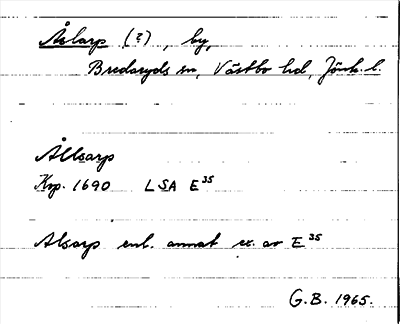 Åslarp (?), by,
Bredaryds sn, Västbo hd, Jönk. l.
Ållsarp
Krp. 1690 LSA E 35
Alsarp enl. annat ex. av E 35
G.B. 1965.